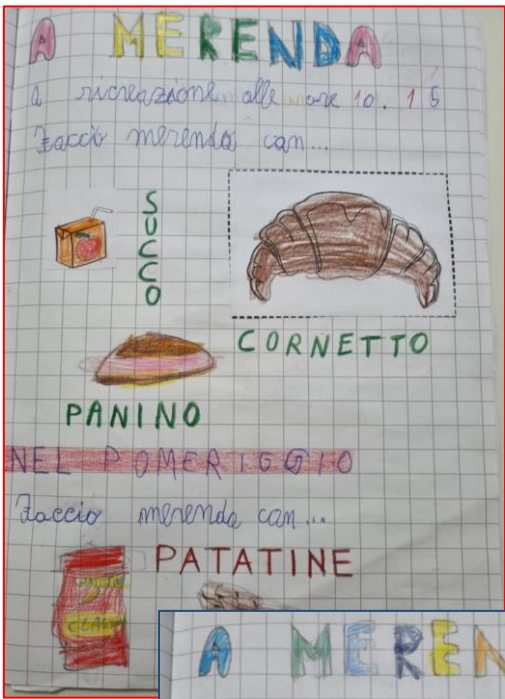 A MERENDA
a ricreazione alle ore 10.15
Faccio merenda con...
SUCCO
CORNETTO
PANINO
NEL POMERIGGIO
Faccio merenda con...
PATATINE
A MEREN